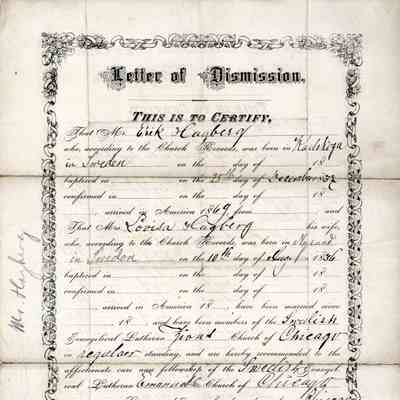 Letter of Dismission.
THIS IS TO CERTIFY,
That Mr. Erik Hagberg
who, according to the Church Records, was born in Karlskoga
in Sweden on the day of 18
baptized in on the 25th day of December 1832
confirmed in on the day of 18
arrived in America 1869 from and
That Mrs. Lovisa Hagberg his wife,
who, according to the Church Records, was born in
in Sweden on the 10th day of 1836
baptized in on the day of 18
confirmed in on the day of 18
arrived in America 18 , have been married since
18 and have been members of the Swedish
Evangelical Lutheran Church of Chicago
in regular standing, and are hereby recommended to the
affectionate care and fellowship of the Swedish Evangel-
ical Lutheran Emanuel Church of Chicago
Chicago
Mr Hagberg